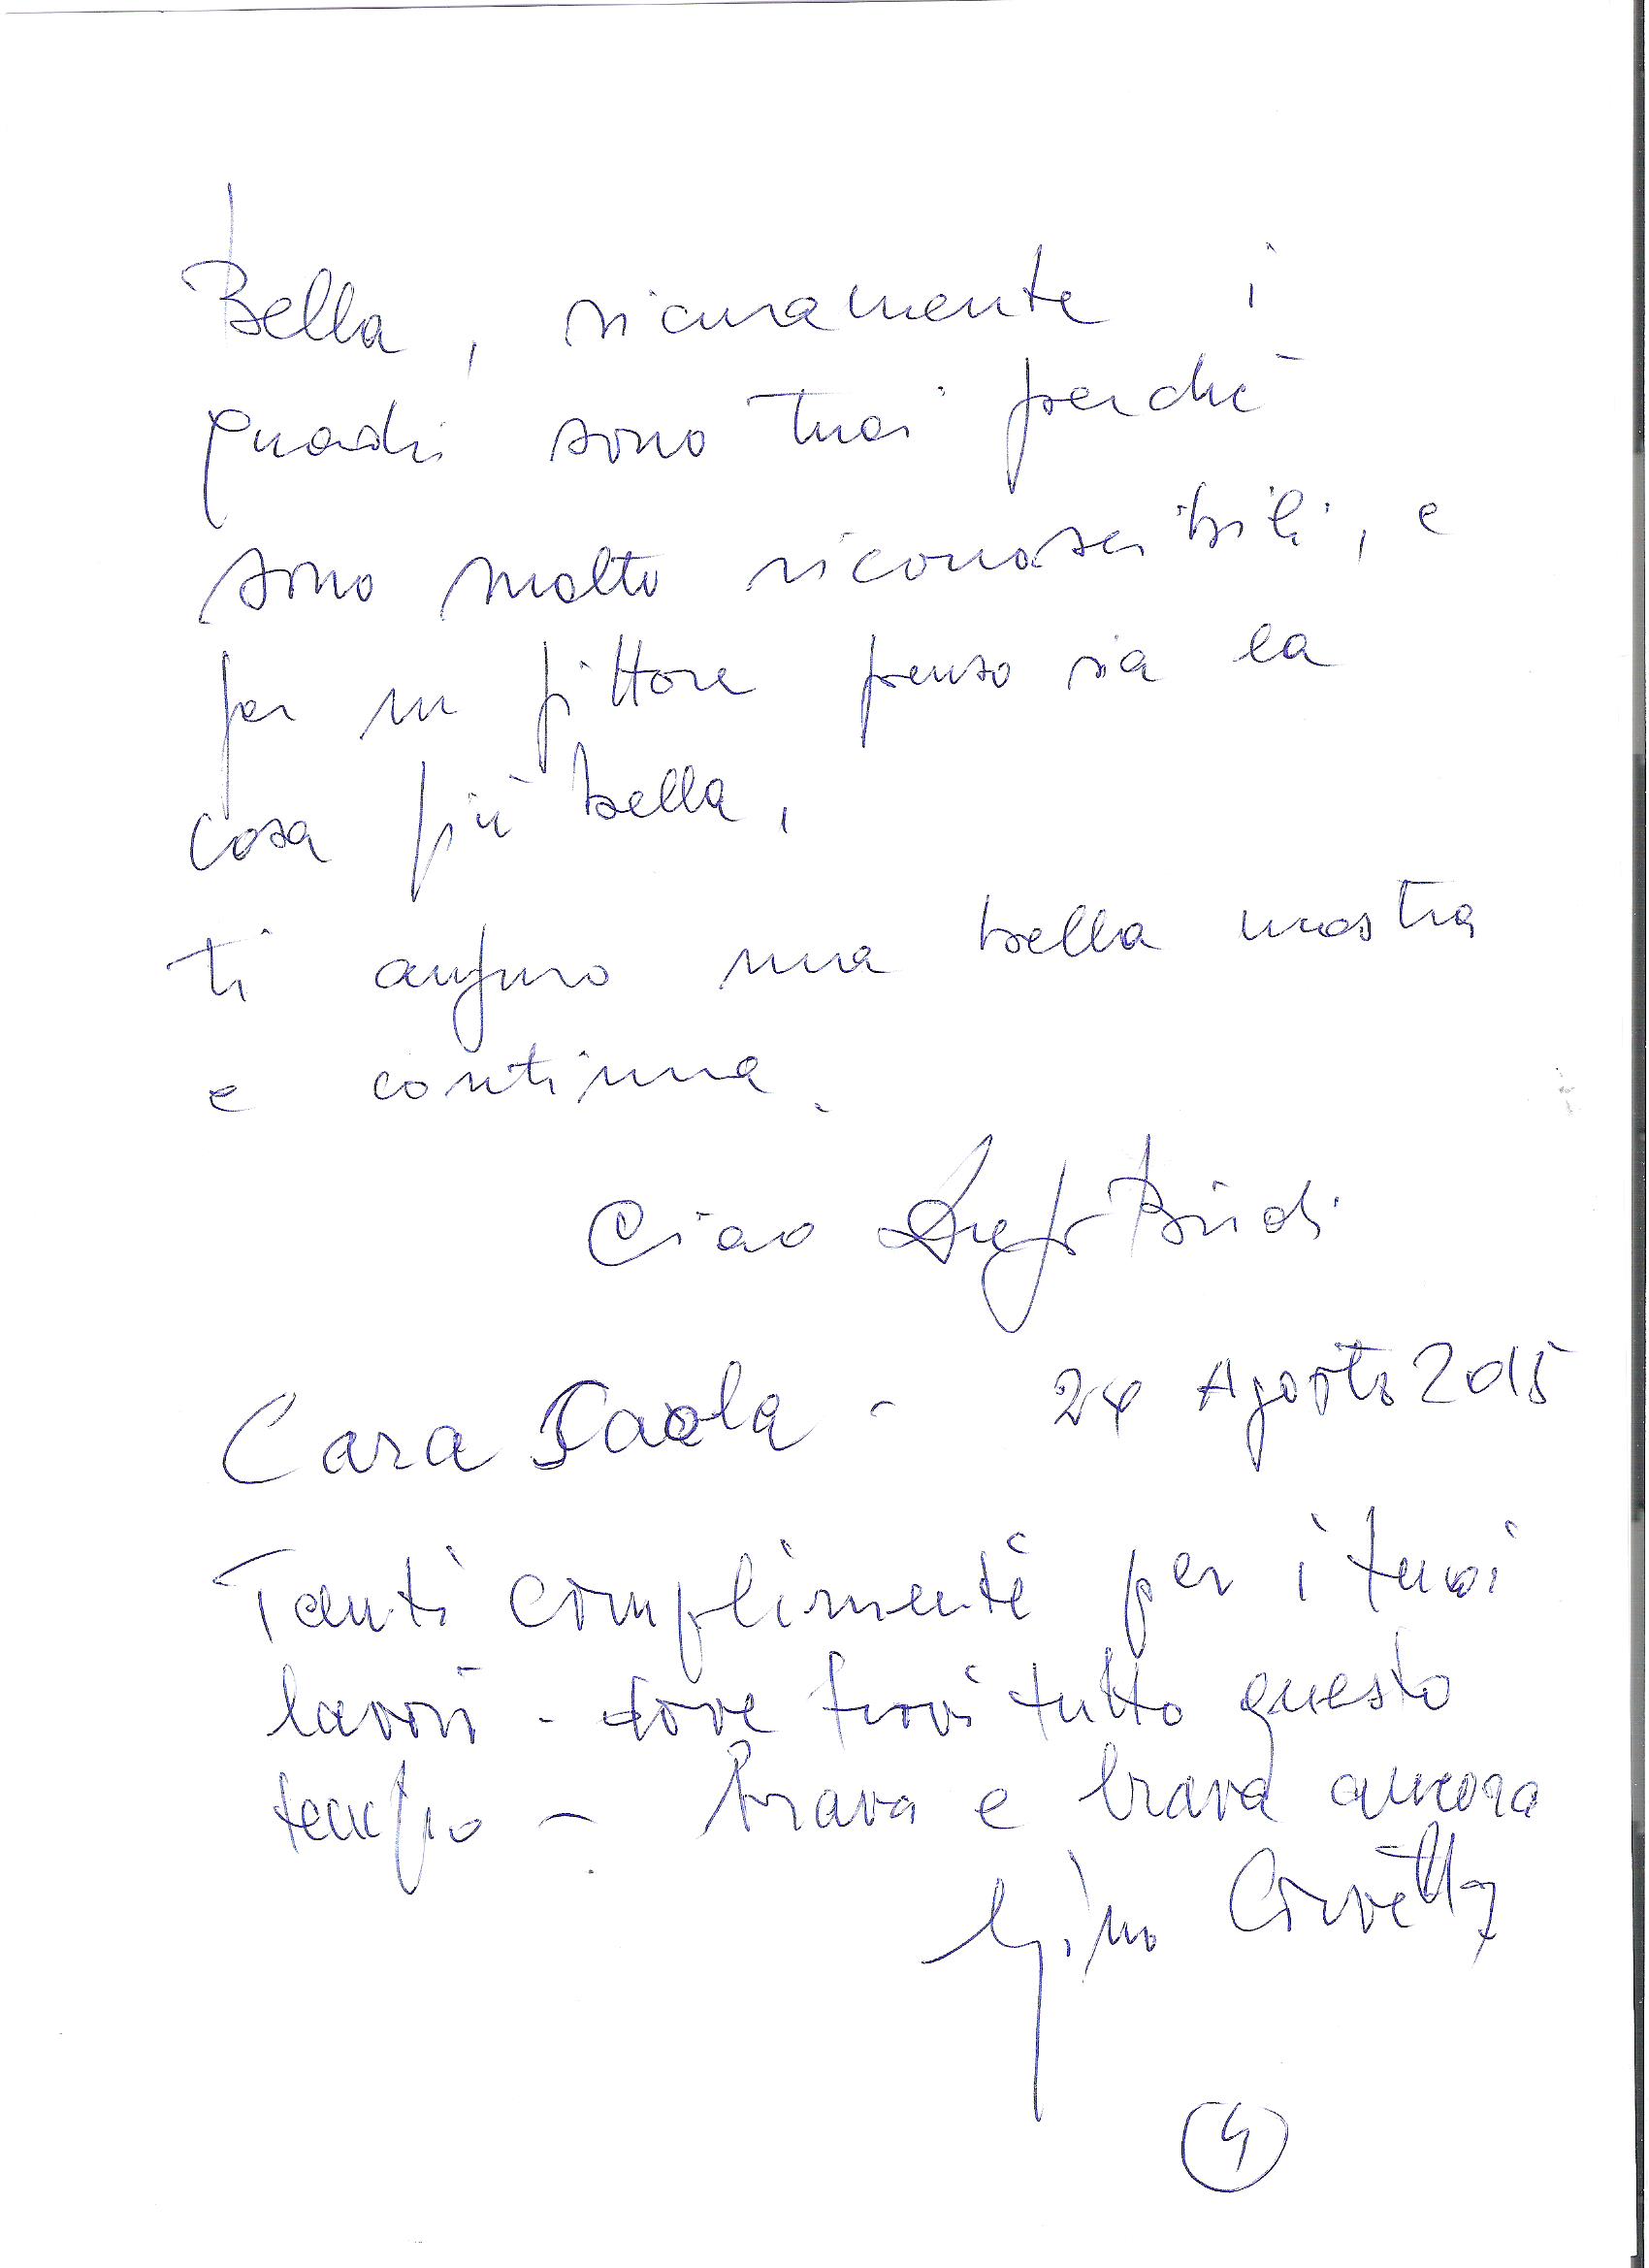 Bella, sicuramente i
quadri sono tuoi perchè
sono molto riconoscibili, e
per un pittore penso sia la
cosa più bella,
ti auguro una bella mostra
e continua.
Ciao Bindi
Cara Paola - 24 Agosto 2015
Tanti complimenti per i tuoi
lavori - dove trovi tutto questo
tempo - brava e brava ancora
Gino
4